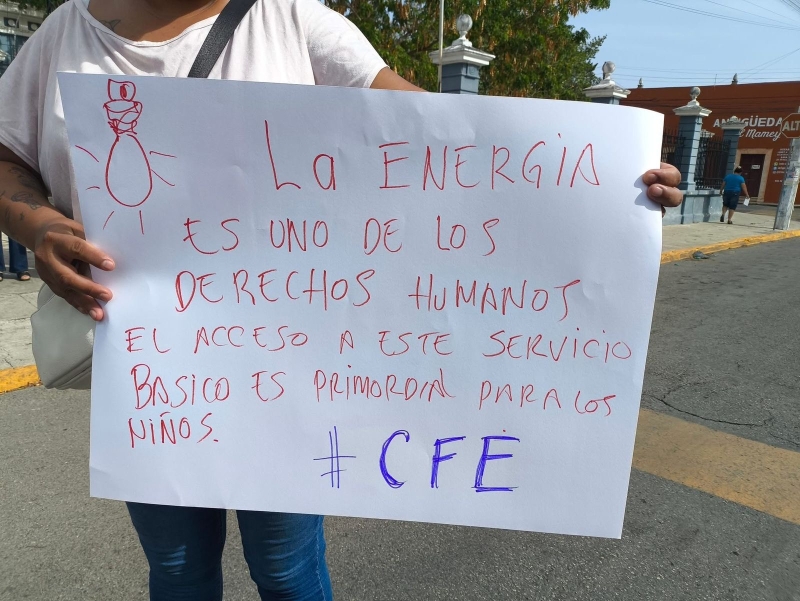 La ENERGíA
ES UNO DE LOS
DERECHOS HUMANOS
EL ACCESO A ESTE SERVICIO
BASICO ES PRIMORDIAL PARA LOS
NIÑOS.
#CFE
ALT